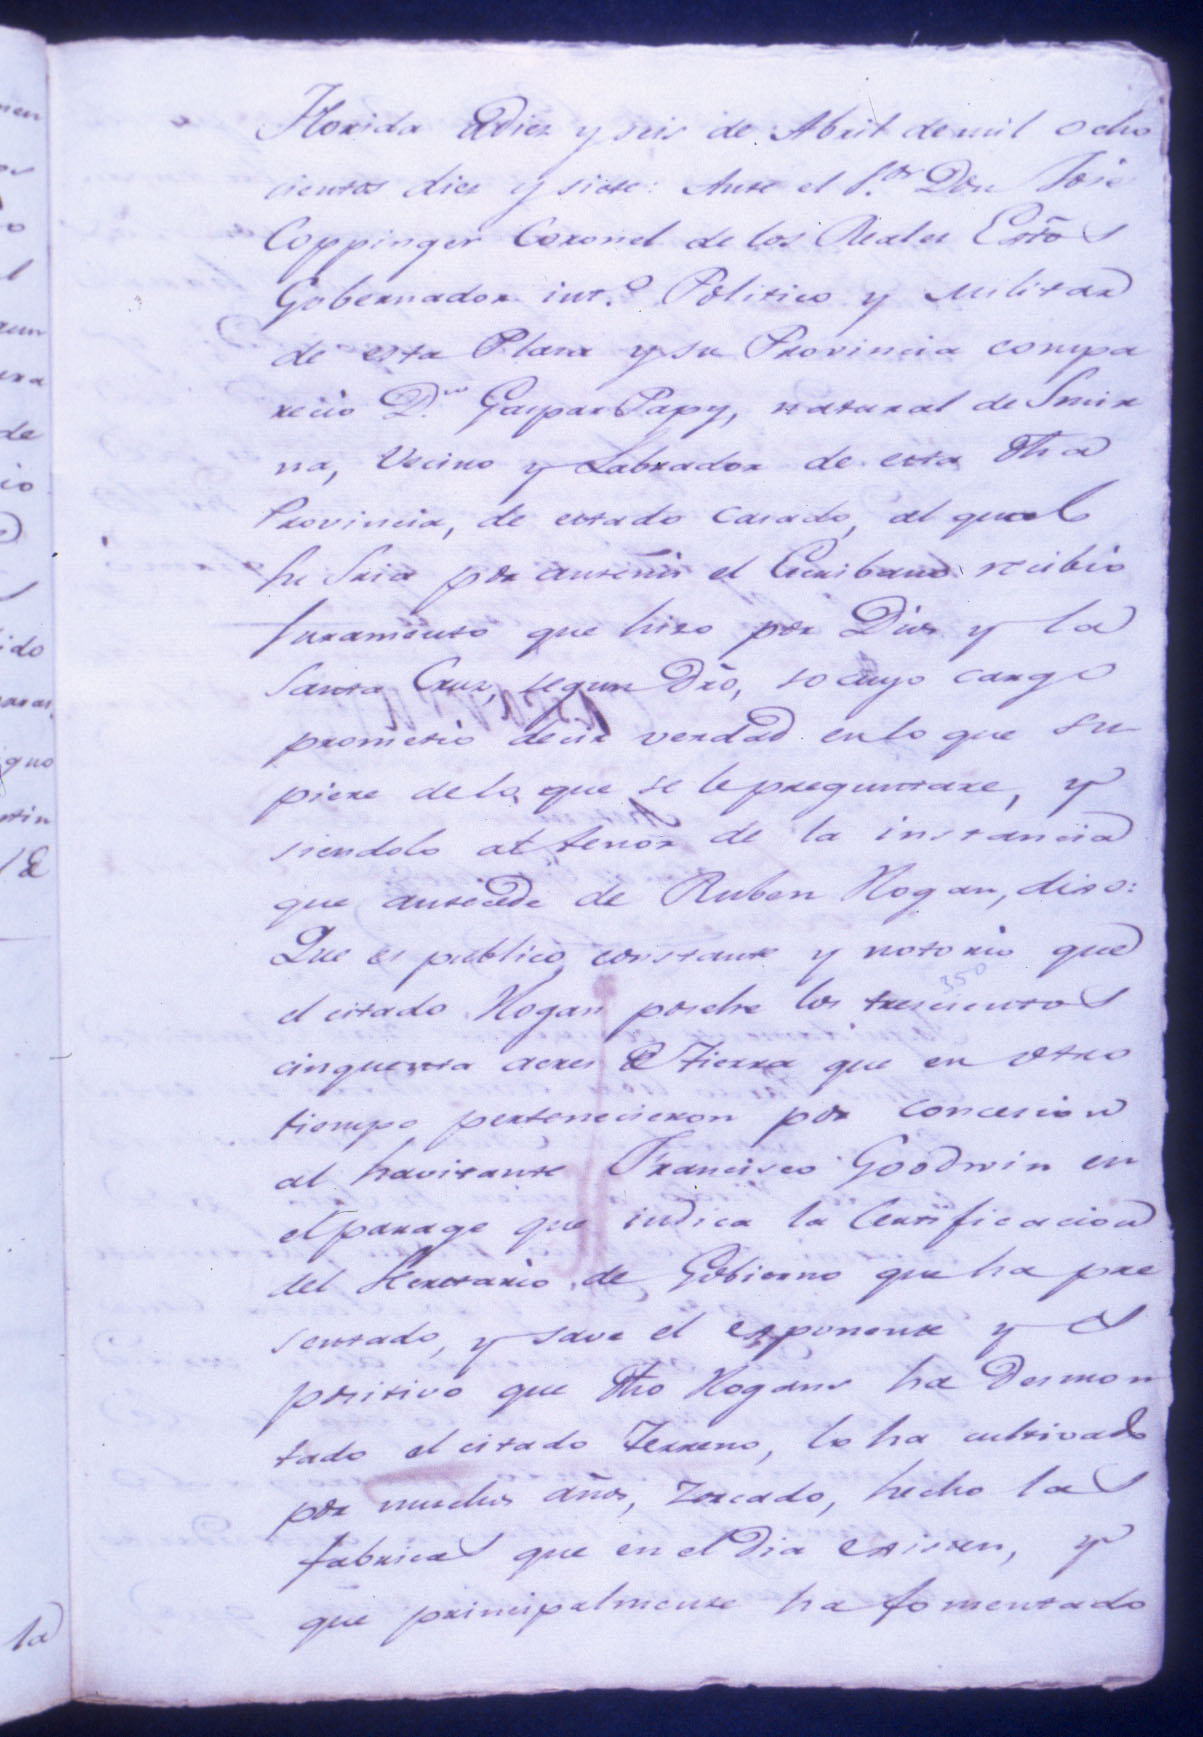 Florida a diez y seis de Abril de mil ocho
cientos diez y siete: Ante el S.or Don José
Coppinger Coronel de los Reales Extõs
Gobernador int.o Politico y Militar
de esta Plaza y su Provincia compa
recio D.n Gaspar Papy, natural de Smir
na, Vecino y Labrador de esta dha
Provincia, de estado Casado, al qual
Su Sria por antemi el Escribano recibio
Juramento que hizo por Dios y la
Santa Cruz, segun dro, so cuyo cargo
prometio decir verdad en lo que su
piere de lo que se le preguntare, y
siendolo al tenor de la instancia
que antecede de Ruben Hogan, dixo:
Que es publico, constante y notorio que
350
el citado Hogan posehe los trescientos
cinquenta acres de tierra que en otro
tiempo pertenecieron por concesion
al havitante Francisco Goodwin en
el parage que indica la Certificacion
del Secretario de Gobierno que ha pre
sentado, y save el exponente y es
positivo que dho Hogans ha Desmon
tado el citado Terreno, lo ha cultivado
por muchos años, zercado, hecho las
fabricas que en el dia existen, y
que principalmente ha fomentado
men
de
io
ido
la